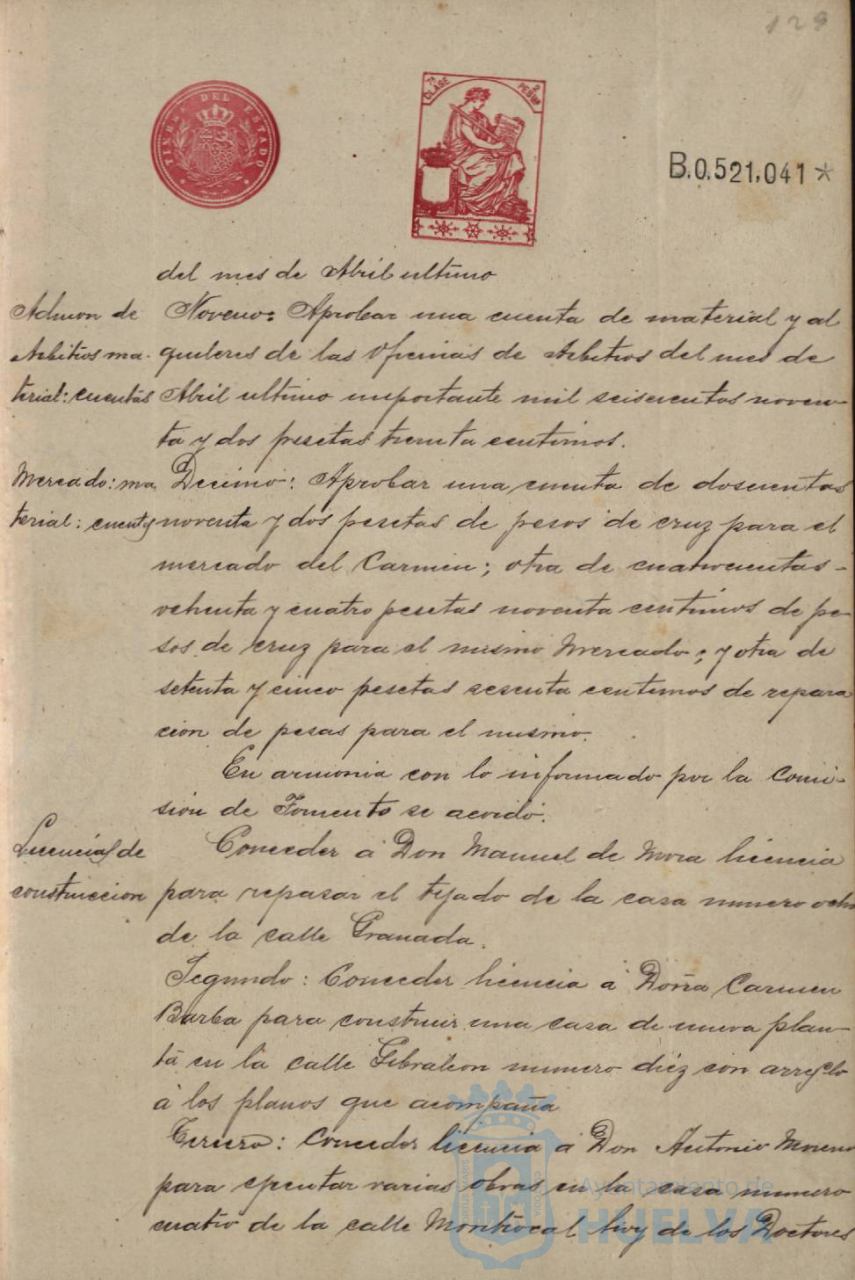 129
TIMBRE DEL ESTADO
7ª CLASE 2 PESETAS
B.0.521,041*
del mes de Abril ultimo
Admon de Arbitrios material: cuentas
Noveno: Aprobar una cuenta de material y al
quileres de las Oficinas de Arbitrios del mes de
Abril ultimo importante mil seiscientas noven-
ta y dos pesetas treinta centimos.
Mercado: material: cuentas
Decimo: Aprobar una cuenta de doscientas
noventa y dos pesetas de pesos de cruz para el
mercado del Carmen; otra de cuatrocientas-
ochenta y cuatro pesetas noventa centimos de pe-
sos de cruz para el mismo Mercado; y otra de
setenta y cinco pesetas sesenta centimos de repara
cion de pesas para el mismo.
En armonia con lo informado por la Comi-
sión de Fomento se acordó.
Licencias de construccion
Conceder á Don Manuel de Mora licencia
para repasar el tejado de la casa numero ocho
de la calle Granada.
Segundo: Conceder licencia á Doña Carmen
Barba para construir una casa de nueva plan-
ta en la calle Gibraleon numero diéz con arreglo
á los planos que acompaña
Tercero: Conceder licencia á Don Antonio Moreno
para ejecutar varias obras en la casa numero
cuatro de la calle Montrocal hoy de los Doctores
Ayuntamiento de
HUELVA